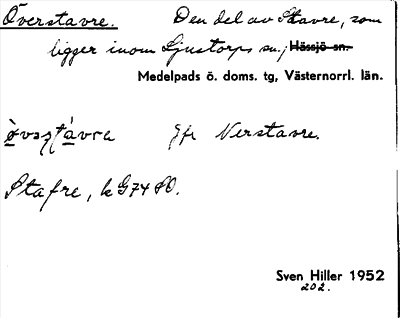 Överstavre. Den del av Stavre, som
ligger inom Ljustorps sn.; Hässjö sn.
Medelpads ö. doms. tg, Västernorrl. län.
Jfr Nerstavre.
Stafre, k G74 SO.
Sven Hiller 1952
202.